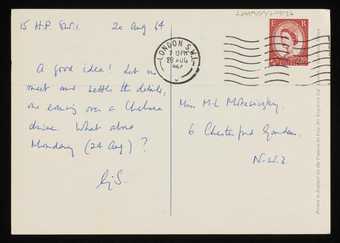 15 H.P. S.W.1. 20 Aug 64
A good idea! Let us
meet and settle the details,
one evening over a Chelsea
drink. What about
Monday (24 Aug)?
LONDON S.W.1.
7 PM
20 AUG
E R
Miss M L
6 Chesterford Gardens,
N.W.3